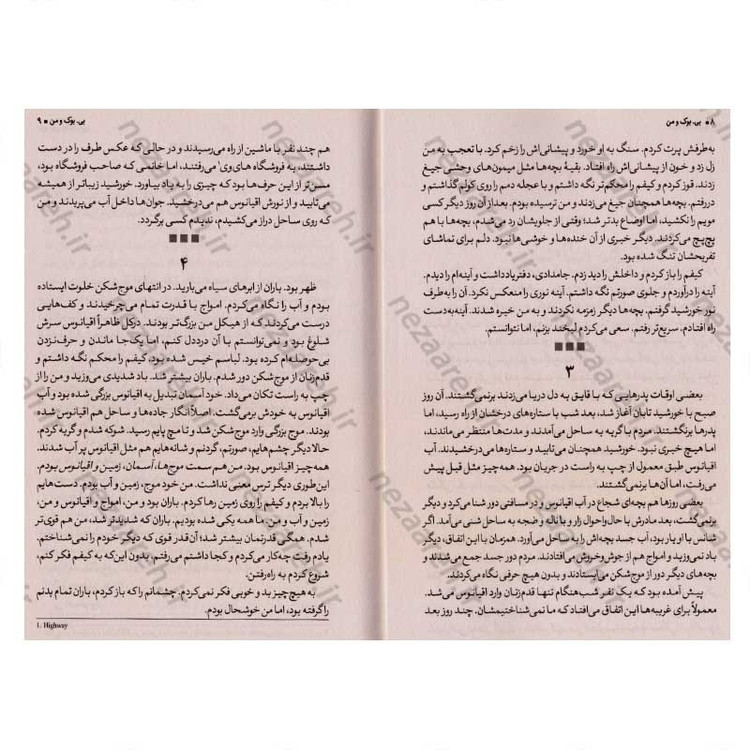 ۸ ■ بی. بوک و من
به‌طرفش پرت کردم. سنگ به او خورد و پیشانی‌اش را زخم کرد. با تعجب به من
زل زد و خون از پیشانی‌اش راه افتاد. بقیهٔ بچه‌ها مثل میمون‌های وحشی جیغ
زدند. قوز کردم و کیفم را محکم‌تر نگه داشتم و با عجله دمم را روی کولم گذاشتم و
دررفتم. بچه‌ها همچنان جیغ می‌زدند و من ترسیده بودم. بعد از آن روز دیگر کسی
مویم را نکشید، اما اوضاع بدتر شد؛ وقتی از جلویشان رد می‌شدم، بچه‌ها با هم
پچ‌پچ می‌کردند. دیگر خبری از آن خنده‌ها و خوشی‌ها نبود. دلم برای تماشای
تفریحشان تنگ شده بود.
کیفم را باز کردم و داخلش را دید زدم. جامدادی، دفتریادداشت و آینه‌ام را دیدم.
آینه را درآوردم و جلوی صورتم نگه داشتم. آینه نوری را منعکس نکرد. آن را به‌طرف
نور خورشید گرفتم. بچه‌ها دیگر زمزمه نکردند و به من خیره شدند. آینه‌به‌دست
راه افتادم، سریع‌تر رفتم. سعی می‌کردم لبخند بزنم، اما نتوانستم.
■■■
۳
بعضی اوقات پدرهایی که با قایق به دل دریا می‌زدند برنمی‌گشتند. آن روز
صبح با خورشید تابان آغاز شد، بعد شب با ستاره‌های درخشان از راه رسید، اما
پدرها برنگشتند. مردم با گریه به ساحل می‌آمدند و مدت‌ها منتظر می‌ماندند،
اما هیچ خبری نبود. خورشید همچنان می‌تابید و ستاره‌ها می‌درخشیدند. آب
اقیانوس طبق معمول از چپ به راست در جریان بود. همه‌چیز مثل قبل پیش
می‌رفت، اما آن‌ها برنمی‌گشتند.
بعضی روزها هم بچه‌ای شجاع در آب اقیانوس و در مسافتی دور شنا می‌کرد و دیگر
برنمی‌گشت، بعد مادرش با حال‌واحوال زار و با ناله و ضجه به ساحل شنی می‌آمد. اگر
شانس با او یار بود، آب جسد بچه‌اش را به ساحل می‌آورد. همزمان با این اتفاق، دیگر
باد نمی‌وزید و امواج هم از جوش‌وخروش می‌افتادند. مردم دور جسد جمع می‌شدند و
بچه‌های دیگر دور از موج‌شکن می‌ایستادند و بدون هیچ حرفی نگاه می‌کردند.
پیش آمده بود که یک نفر شب‌هنگام تنها قدم‌زنان وارد اقیانوس می‌شد.
معمولاً برای غریبه‌ها این اتفاق می‌افتاد که ما نمی‌شناختیمشان. چند روز بعد
بی. بوک و من ■ ۹
هم چند نفر با ماشین از راه می‌رسیدند و در حالی که عکس طرف را در دست
داشتند، به فروشگاه های‌وی¹ می‌رفتند، اما خانمی که صاحب فروشگاه بود،
مسن‌تر از این حرف‌ها بود که چیزی را به یاد بیاورد. خورشید زیباتر از همیشه
می‌تابید و از نورش اقیانوس هم می‌درخشید. جوان‌ها داخل آب می‌پریدند و من
که روی ساحل دراز می‌کشیدم، ندیدم کسی برگردد.
■■■
۴
ظهر بود. باران از ابرهای سیاه می‌بارید. در انتهای موج‌شکن خلوت ایستاده
بودم و آب را نگاه می‌کردم. امواج با قدرت تمام می‌چرخیدند و کف‌هایی
درست می‌کردند که از هیکل من بزرگ‌تر بودند. درکل ظاهراً اقیانوس سرش
شلوغ بود و نمی‌توانستم با آن درددل کنم، اما یک‌جا ماندن و حرف‌نزدن
بی‌حوصله‌ام کرده بود. لباسم خیس شده بود، کیفم را محکم نگه داشتم و
قدم‌زنان از موج‌شکن دور شدم. باران بیشتر شد. باد شدیدی می‌وزید و من را از
چپ به راست تکان می‌داد. خود آسمان تبدیل به اقیانوس بزرگی شده بود و آب
اقیانوس به خودش برمی‌گشت. اصلاً انگار جاده‌ها و ساحل هم اقیانوس شده
بودند. موج بزرگی وارد موج‌شکن شد و تا مچ پایم رسید. شوکه شدم و گریه کردم.
حالا دیگر چشم‌هایم، صورتم، گردنم و شانه‌هایم هم مثل اقیانوس پر آب شدند.
همه‌چیز اقیانوس بود. من هم سمت موج‌ها، آسمان، زمین و اقیانوس بودم.
این‌طوری دیگر ترس معنی نداشت. من خود موج، زمین و آب بودم. دست‌هایم
را بالا بردم و کیفم را روی زمین رها کردم. باران بود و من، امواج و اقیانوس و من،
زمین و آب و من. ما همه یکی شده بودیم. باران که شدیدتر شد، من هم قوی‌تر
شدم. همگی قدرتمان بیشتر شد؛ آن‌قدر قوی که دیگر خودم را نمی‌شناختم.
یادم رفت چه‌کار می‌کردم و کجا داشتم می‌رفتم، بدون این‌که به کیفم فکر کنم،
شروع کردم به راه‌رفتن.
به هیچ‌چیز بد و خوبی فکر نمی‌کردم. چشمانم را که باز کردم، باران تمام بدنم
را گرفته بود، اما من خوشحال بودم.
1. Highway
nezaareh.ir